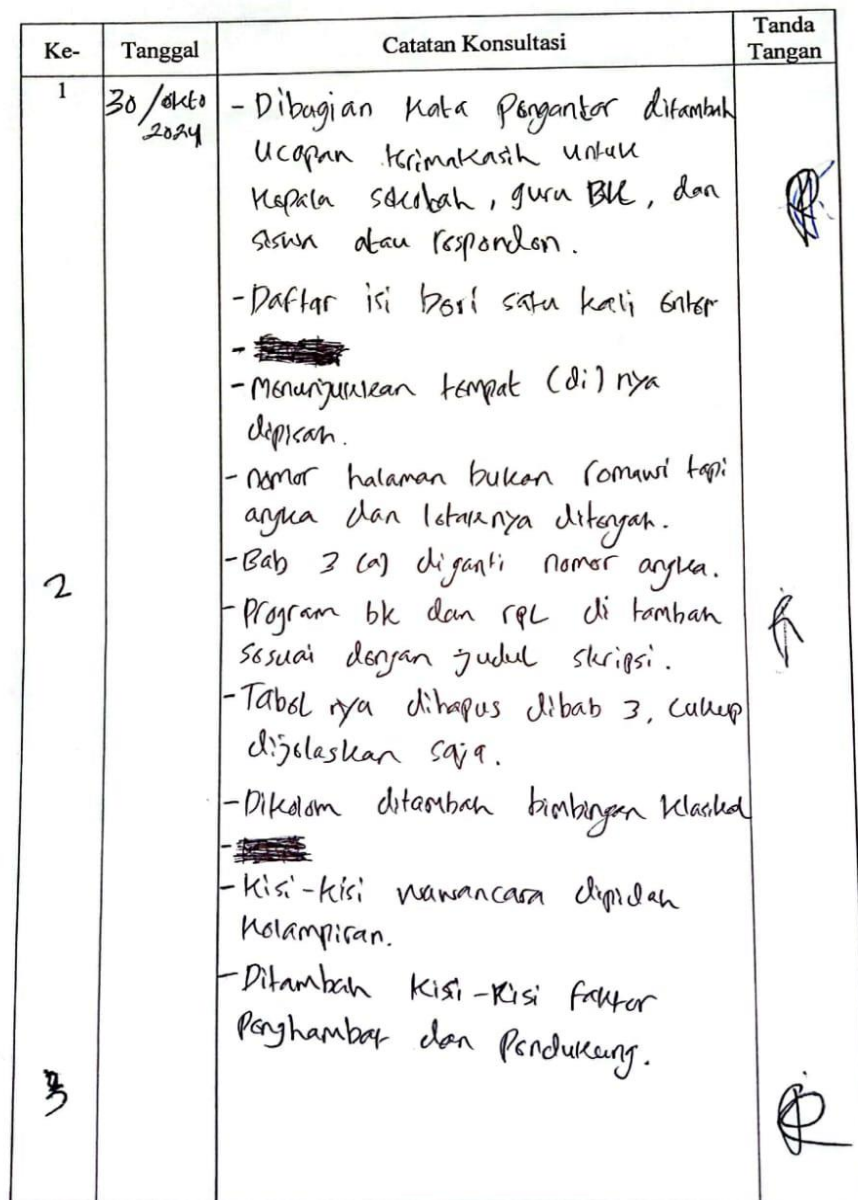 Ke- Tanggal Catatan Konsultasi Tanda Tangan
1 30/okto 2024
- Dibagian Kata Pengantar ditambah
Ucapan terimakasih untuk
Kepala sekolah, guru BK, dan
siswa atau responden.
- Daftar isi beri satu kali enter
-
- Menunjukkan tempat (di) nya
dipisah.
- nomor halaman bukan romawi tapi
angka dan letaknya ditengah.
- Bab 3 (a) diganti nomor angka.
2
- Program bk dan rpl di tambah
sesuai dengan judul skripsi.
- Tabel nya dihapus dibab 3, cukup
dijelaskan saja.
- Dikolom ditambah bimbingan klasikal
-
- Kisi-kisi wawancara dipidah
Kelampiran.
- Ditambah Kisi-Kisi faktor
Penghambat dan Pendukung.
3